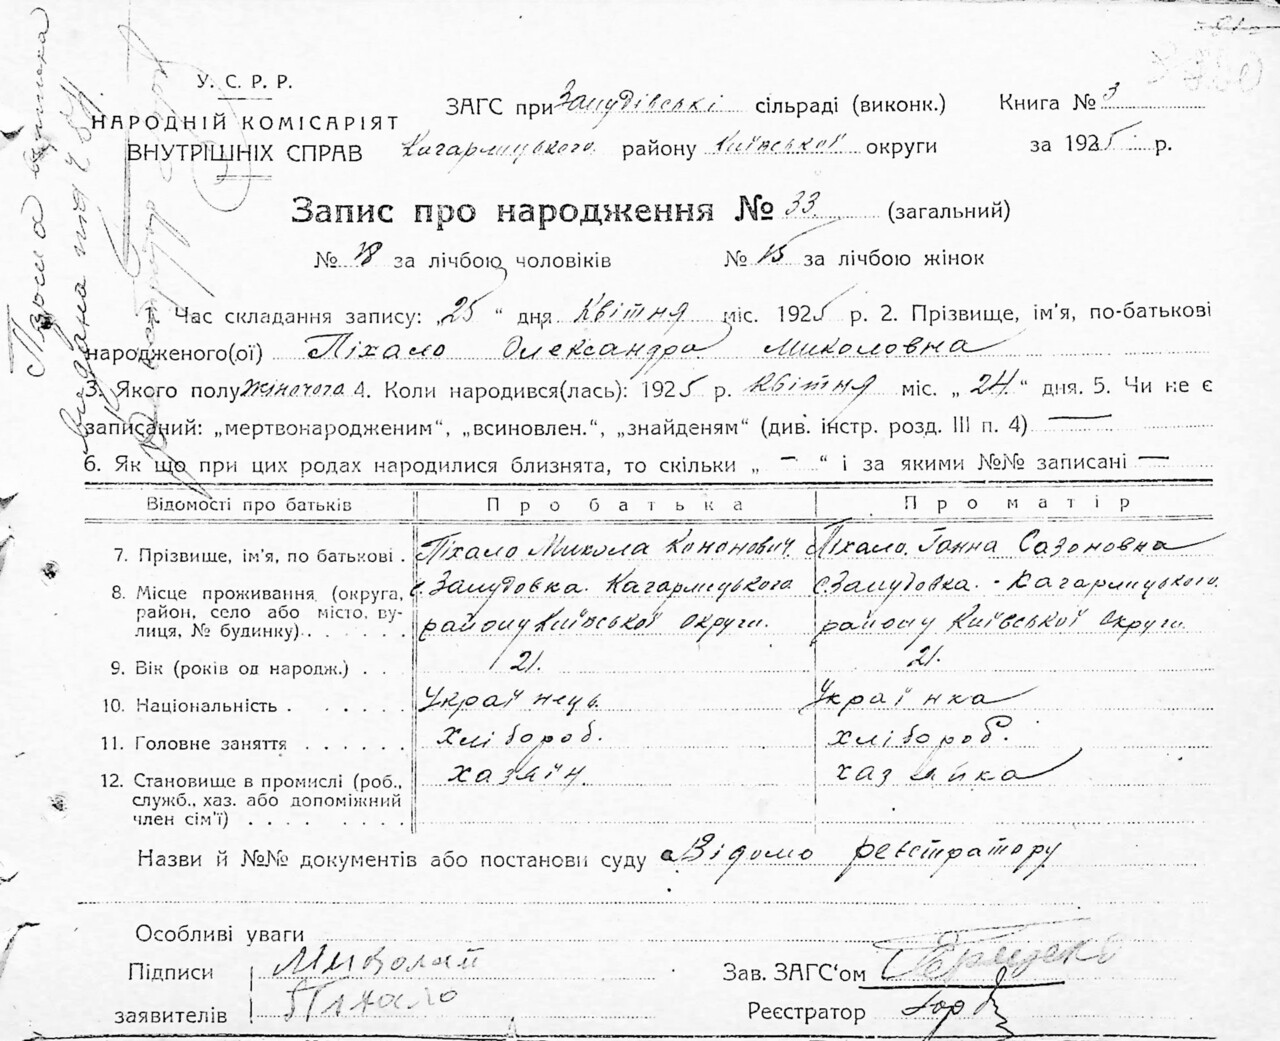 У. С. Р. Р.
НАРОДНІЙ КОМІСАРІЯТ
ВНУТРІШНІХ СПРАВ
ЗАГС при сільраді (виконк.) Книга № 3
Кагарлицького району Київської округи за 1925 р.
Запис про народження № 33 (загальний)
№ 18 за лічбою чоловіків № 15 за лічбою жінок
1. Час складання запису: „25“ дня Квітня міс. 1925 р. 2. Прізвище, ім'я, по-батькові
народженого(ої) Піхало Олександра Миколовна
3. Якого полу Жіночога 4. Коли народився(лась): 1925 р. Квітня міс. „24“ дня. 5. Чи не є
записаний: „мертвонародженим“, „всиновлен.“, „знайденям“ (див. інстр. розд. III п. 4) —
6. Як що при цих родах народилися близнята, то скільки „ – “ і за якими №№ записані —
Відомості про батьків Про батька Про матір
7. Прізвище, ім'я, по батькові . Піхало Микола Кононович. Піхало Ганна Сазоновна
8. Місце проживання (округа, район, село або місто, вулиця, № будинку) . . с. Кагарлицького району Київської округи. с. Кагарлицького району Київської округи.
9. Вік (років од народж.) . . 21. 21.
10. Національність . . . . . Українець Українка
11. Головне заняття . . . . . . хлібороб. хлібороб.
12. Становище в промислі (роб., служб., хаз. або допоміжний член сім'ї) . . . . . . . хазяїн хазяйка
Назви й №№ документів або постанови суду Відомо реєстратору
Особливі уваги
Підписи Миколай
заявителів Піхало
Зав. ЗАГС'ом
Реєстратор